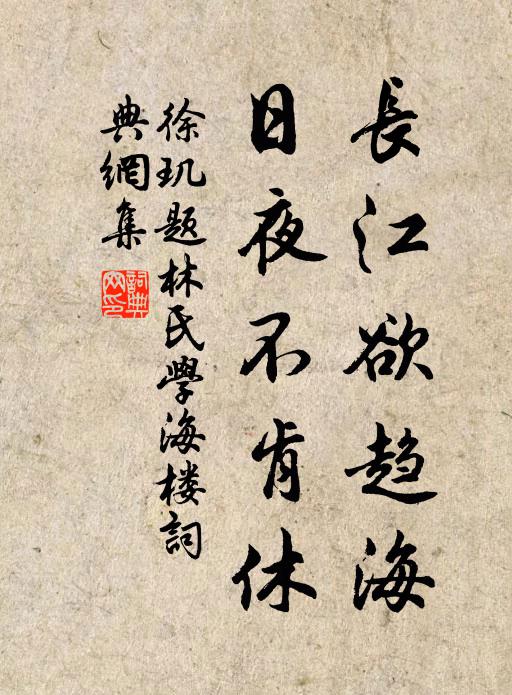 長江欲趋海
日夜不肯休
徐玑题林氏學海楼詞
典網集
詞典網印